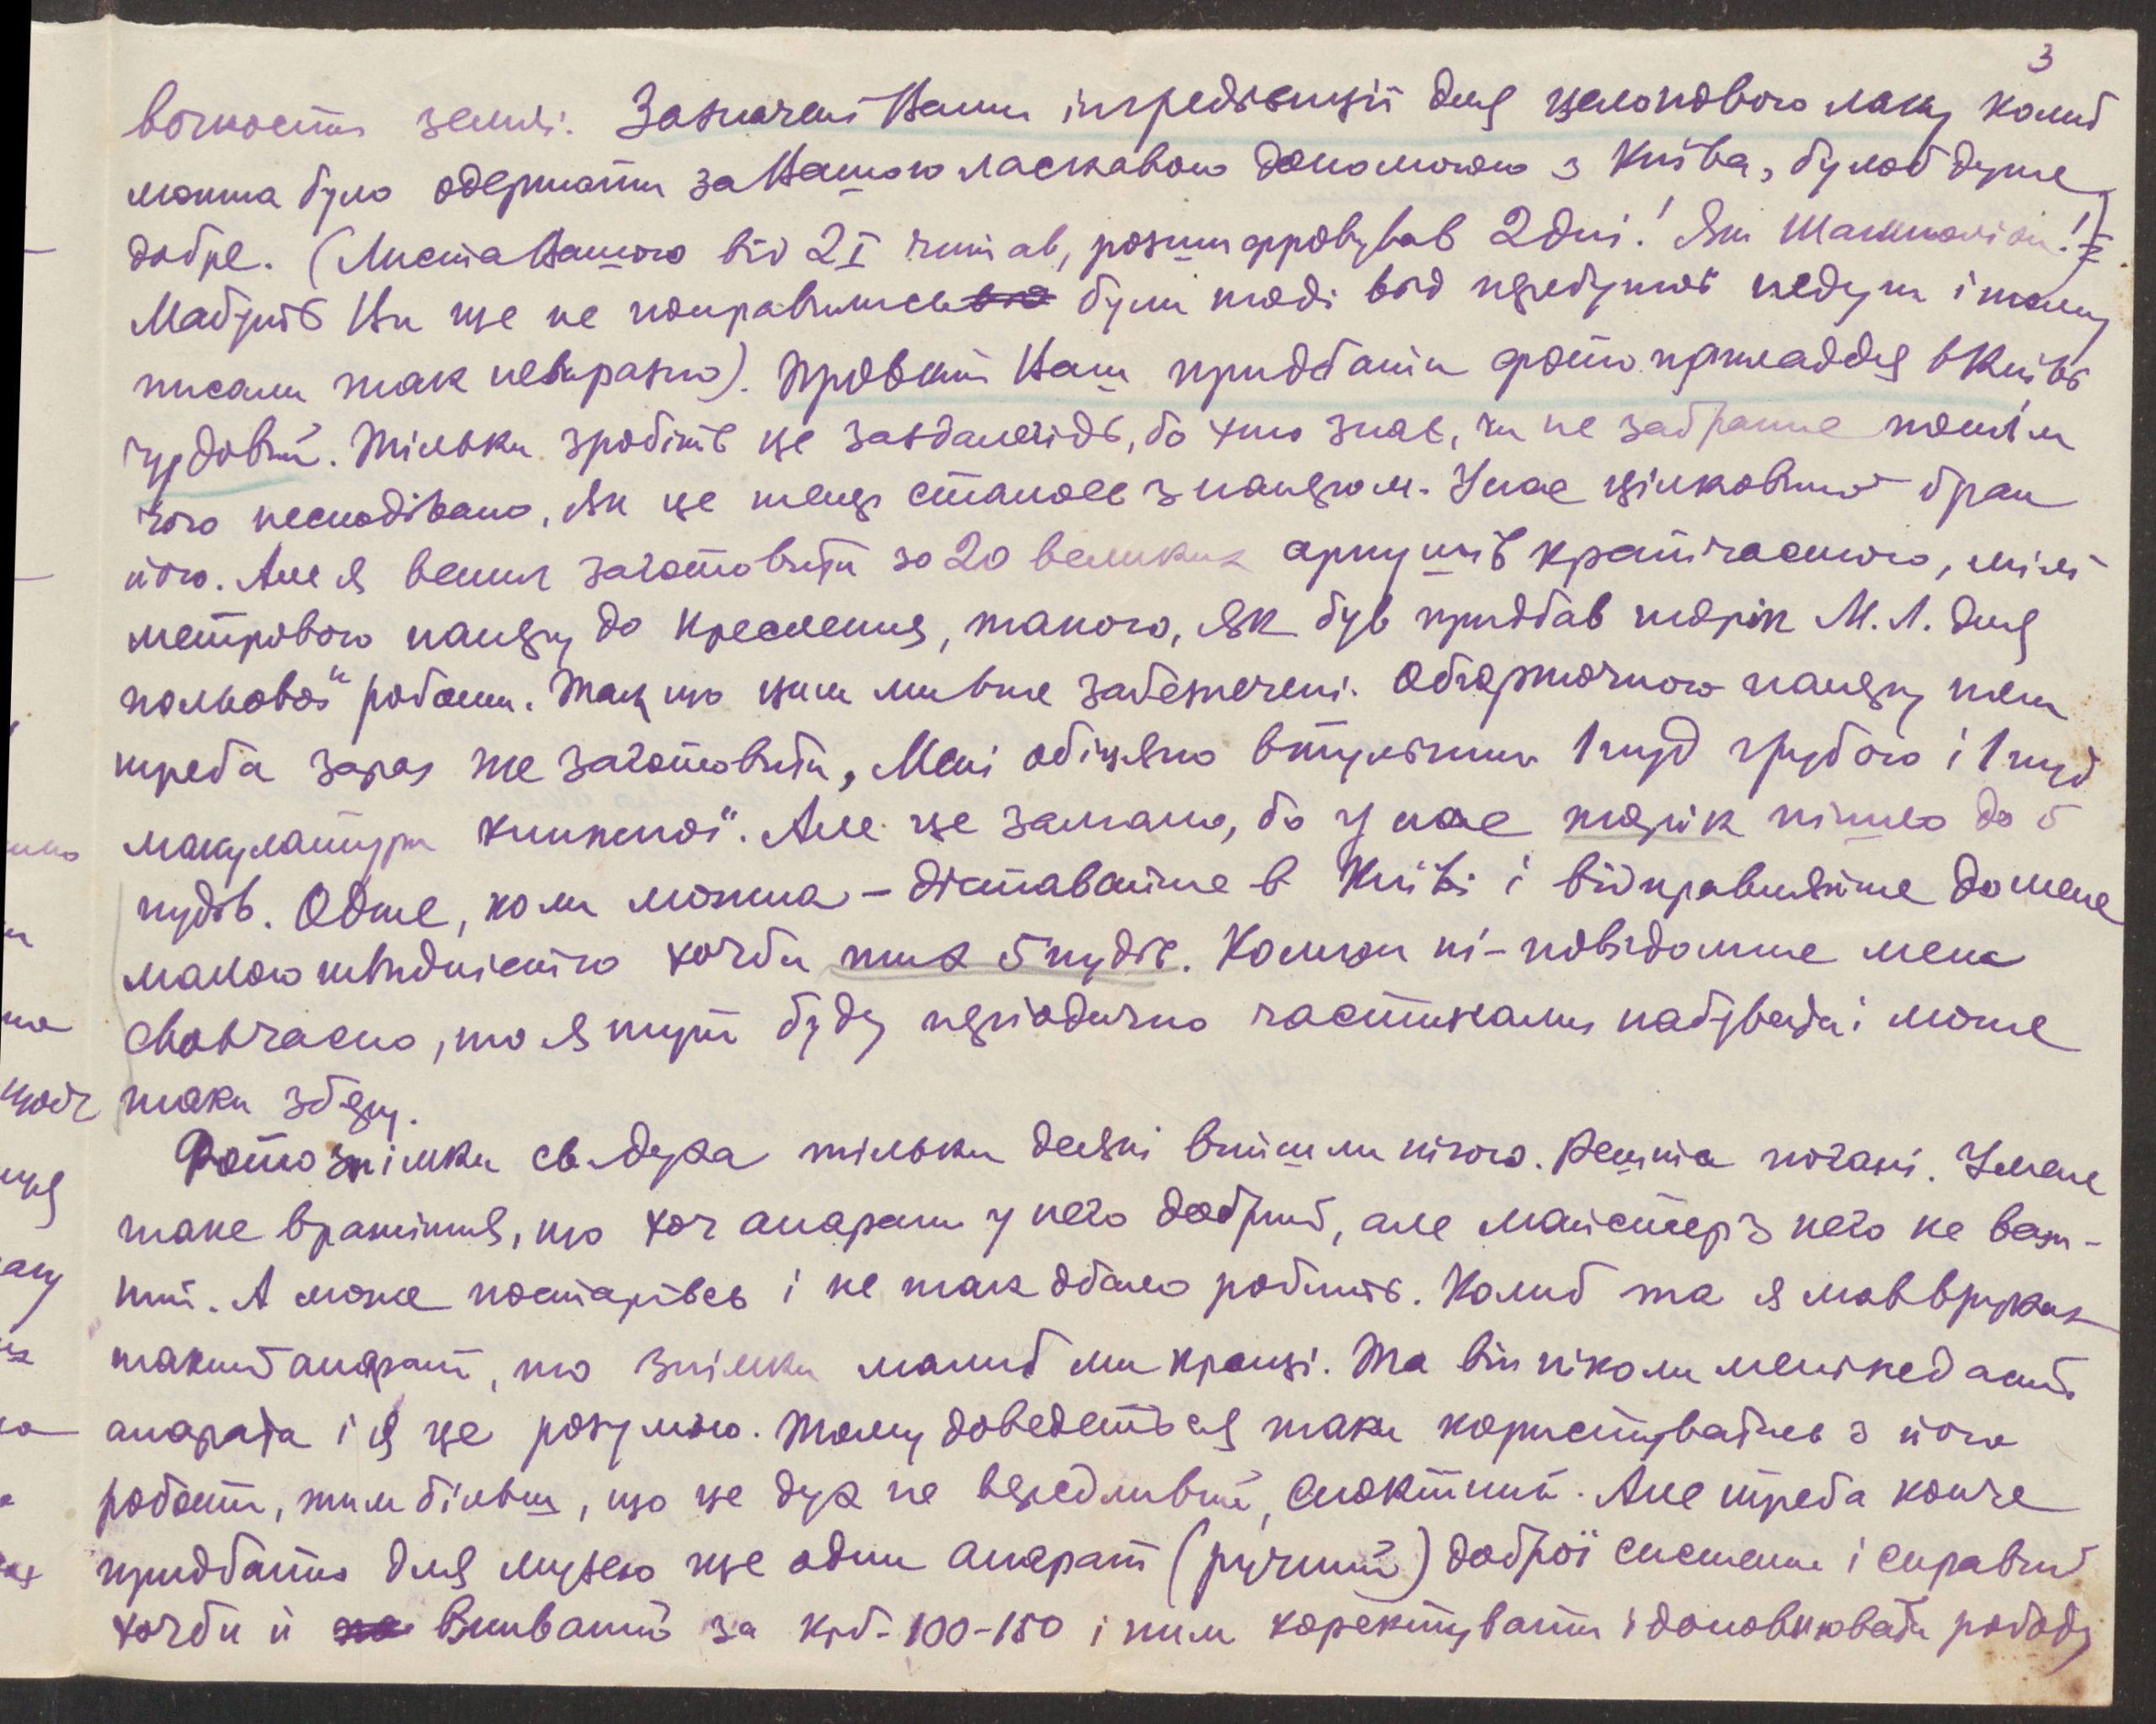 3
вогкости землі. Зазначені Вами інгредієнції для целонового лаку колиб
можна було одержати за Вашою ласкавою допомогою з Київа, булоб дуже
добре. (Листа Вашого від 2 I читав, розшифровував 2 дні! Як Шамполіон!
Мабуть Ви ще не поправились були тоді від недуги і тому
писали так невиразно). Провкт Ваш придбати фото приладдя в Київі
чудовий. Тільки зробіть це заздалегідь, бо хто знає, чи не забракне потім
чого несподівано, як це тепер сталось з папером. У нас цілковитий брак
його. Але я велил заготовити зо 20 великих аркушів кратчасного, мілі-
метрового паперу до креслення, такого, як був придбав торік М. Л. для
польової" роботи. Так що цим ми вже забезпечені. Обгорточного паперу теж
треба зараз же заготовити, Мені обіцяно втуліти 1 пуд грубого і 1 пуд
макулатури книжної". Але це замало, бо у нас торік пішло до 5
пудів. Отже, коли можна – діставайте в Київі і відправляйте до мене
малою швидністю хочби тих 5 пудів. Коли ж ні – повідомте мене
своєчасно, то я тут буду періодично частинами набувати і може
таки зберу.
Фотознімки св. духа тільки деякі вийшли нічого. Решта погані. У мене
таке вражіння, що хоч апарат у него добрий, але майстер з него не важ-
ний. А може постарівсь і не так дбало робить. Колиб та я мав в руках
такий апарат, то знімки малиб ми кращі. Та він ніколи мені не дасть
апарата і я це розумію. Тому доведеться таки користуватись з його
роботи, тим більш, що це дух не вередливий, спокійний. Але треба конче
придбати для музею ще один апарат (ручний) доброї системи і справний
хочби й вживаний за крб. 100-150 і ним коректувати і доповнювати роботу